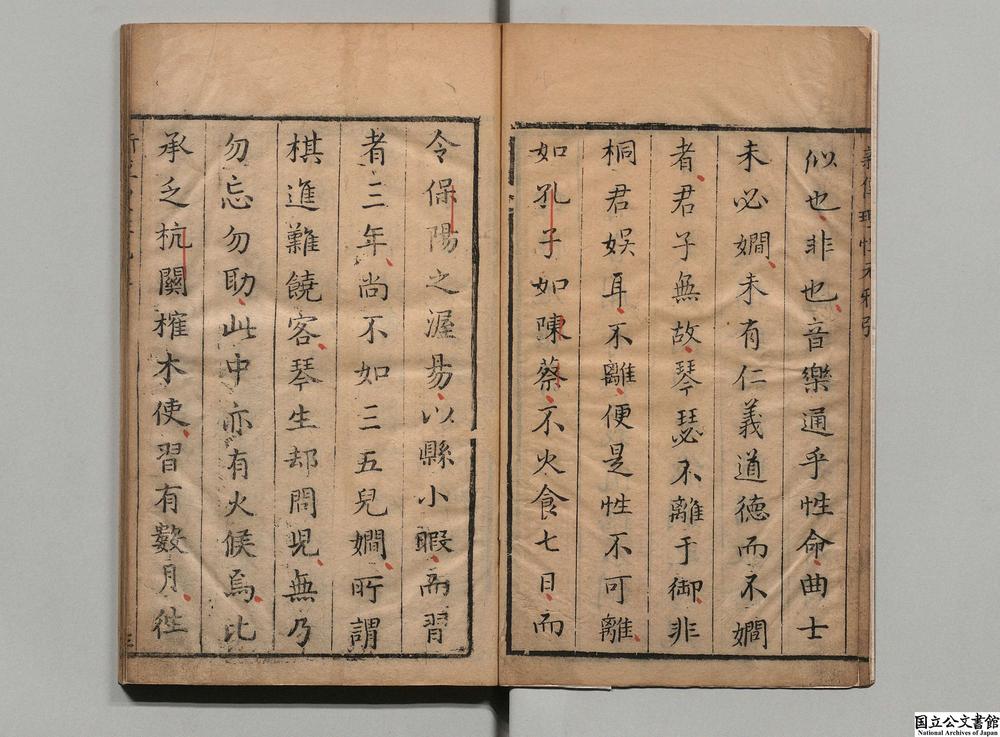 似也非也音樂通乎性命曲士
未必嫺未有仁義道德而不嫺
者君子無故琴瑟不離于御非
桐君娛耳不離便是性不可離
如孔子如陳蔡不火食七日而
令保陽之渥易以縣小暇而習
者三年尚不如三五兒嫺所謂
棋進難饒客琴生却問児無乃
勿忘勿助此中亦有火候焉比
承乏杭關榷木使習有數月徃
国立公文書館
National Archives of Japan